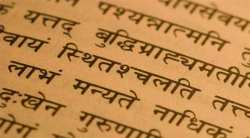 पश्यन्नात्मनि
यत्तद् बुद्धिग्राह्यमती
वायं स्थितश्चलति तत्त
लाभं मन्यते नाधिक
दुःखेन गुरुणा